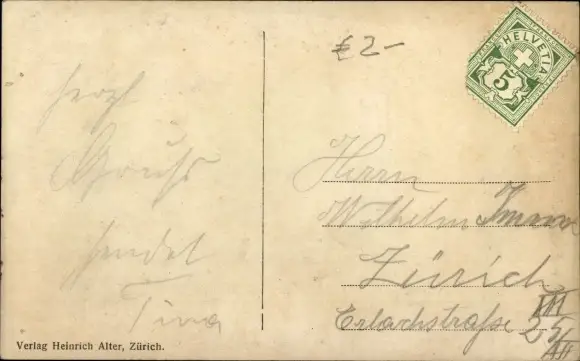 £2-
HELVETIA
5
herzl
Gruss
sendet
Tina
Herrn
Wilhelm
Zürich
III
Erlachstraße
Verlag Heinrich Alter, Zürich.